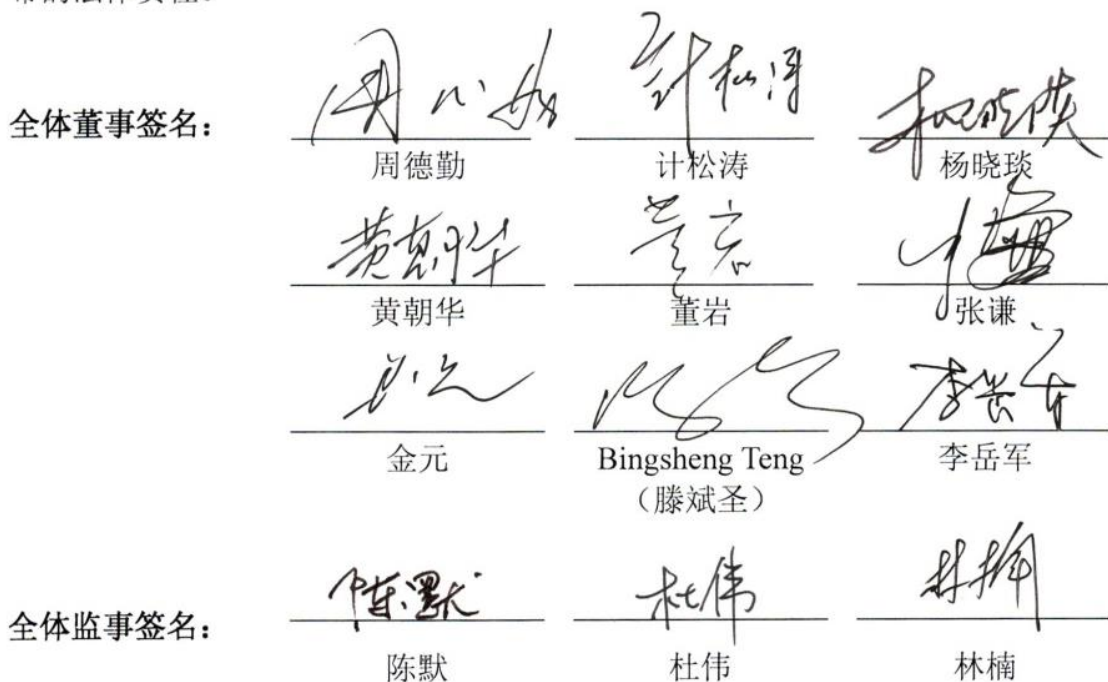 全体董事签名：
周德勤 计松涛 杨晓琰
黄朝华 董岩 张谦
金元 Bingsheng Teng 李岳军
（滕斌圣）
全体监事签名：
陈默 杜伟 林楠